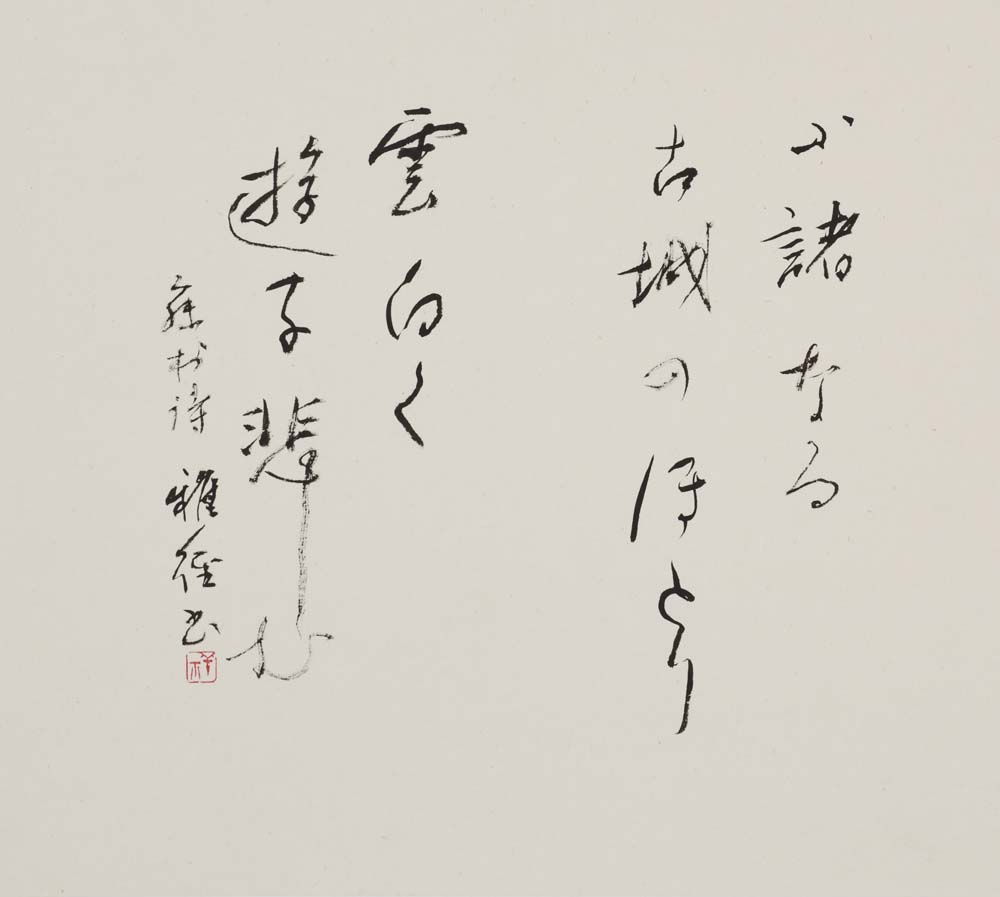 小諸なる
古城のほとり
雲白く
遊子悲む
藤村詩 雅径書
祥